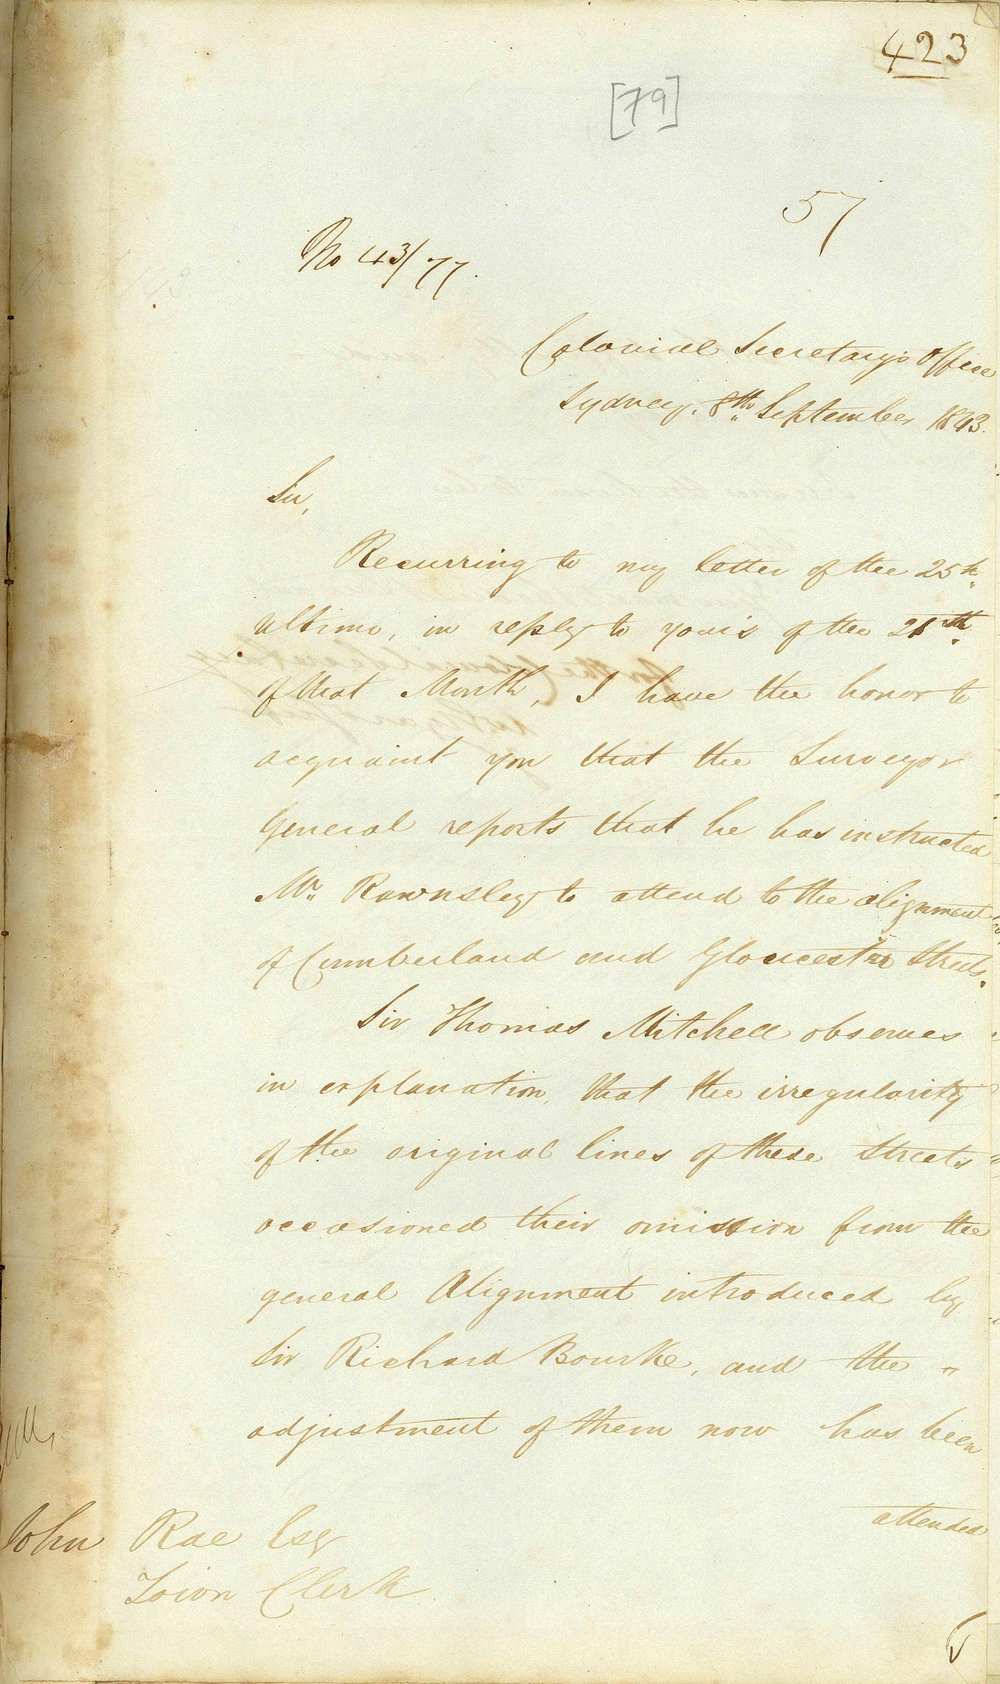 423
[79]
57
No 43/77.
Colonial Secretary's Office
Sydney, 8th September 1843.
Sir,
Recurring to my letter of the 25th
Ultimo, in reply to yours of the 21st
of that Month, I have the honor to
acquaint you that the Surveyor
General reports that he has instructed
Mr Rawnsley to attend to the alignment
of Cumberland and Gloucester Streets.
Sir Thomas Mitchell observes
in explanation, that the irregularity
of the original lines of these Streets
occasioned their omission from the
general Alignment introduced by
Sir Richard Bourke, and the "
adjustment of them now has been
attended
John Rae Esq
Town Clerk